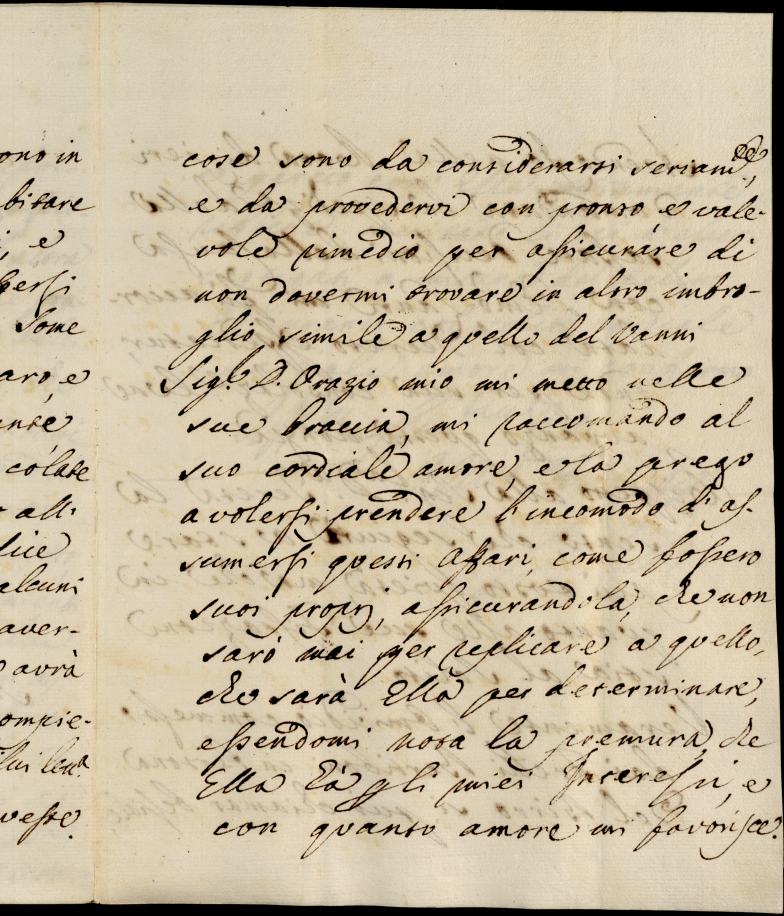 ono in
bitare
i, e
bersi
Some
aro, e
ente
colate
r all'
lice
alcuni
aver-
avrà
ompie-
veste.
cose sono da considerarsi seriam.te,
e da provedervi con pronto, e vale-
vole rimedio per assicurare di
non dovermi trovare in altro imbro-
glio simile a quello del Vanni
Sig.r D. Orazio mio mi metto nelle
sue braccia, mi raccomando al
suo cordiale amore, e la prego
a volersi prendere l'incomodo d'as-
sumersi questi affari, come fossero
suoi proprj, assicurandola, che non
saró mai per replicare a quello,
che sarà Ella per determinare,
essendomi nota la premura, che
Ella hà gli miei Interessi, e
con quanto amore mi favorisce.